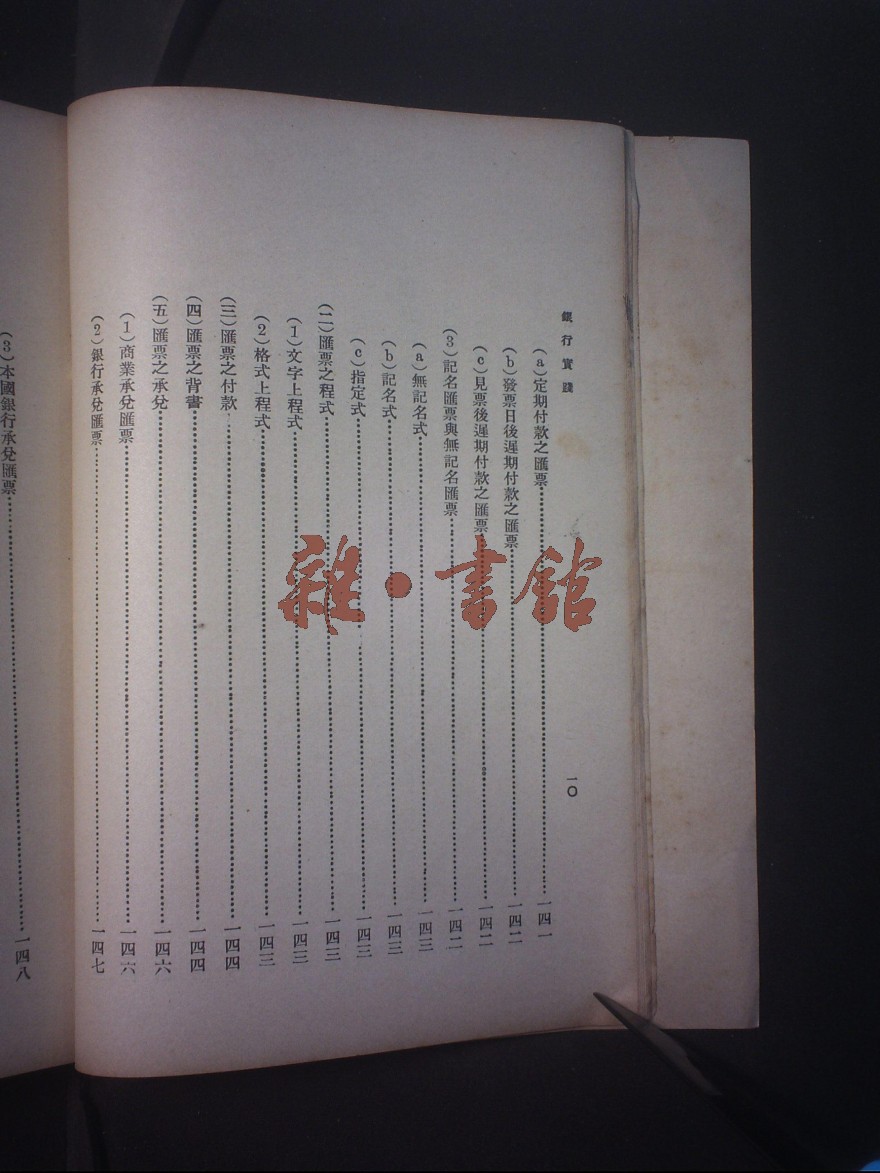 銀行實踐 一〇
(a)定期付款之匯票……一四一
(b)發票日後遲期付款之匯票……一四二
(c)見票後遲期付款之匯票……一四二
(3)記名匯票與無記名匯票……一四二
(a)無記名式……一四三
(b)記名式……一四三
(c)指定式……一四三
(二)匯票之程式……一四三
(1)文字上程式……一四三
(2)格式上程式……一四三
(三)匯票之付款……一四四
(四)匯票之背書……一四四
(五)匯票之承兌……一四六
(1)商業承兌匯票……一四六
(2)銀行承兌匯票……一四七
(3)本國銀行承兌匯票……一四八
雜·書館